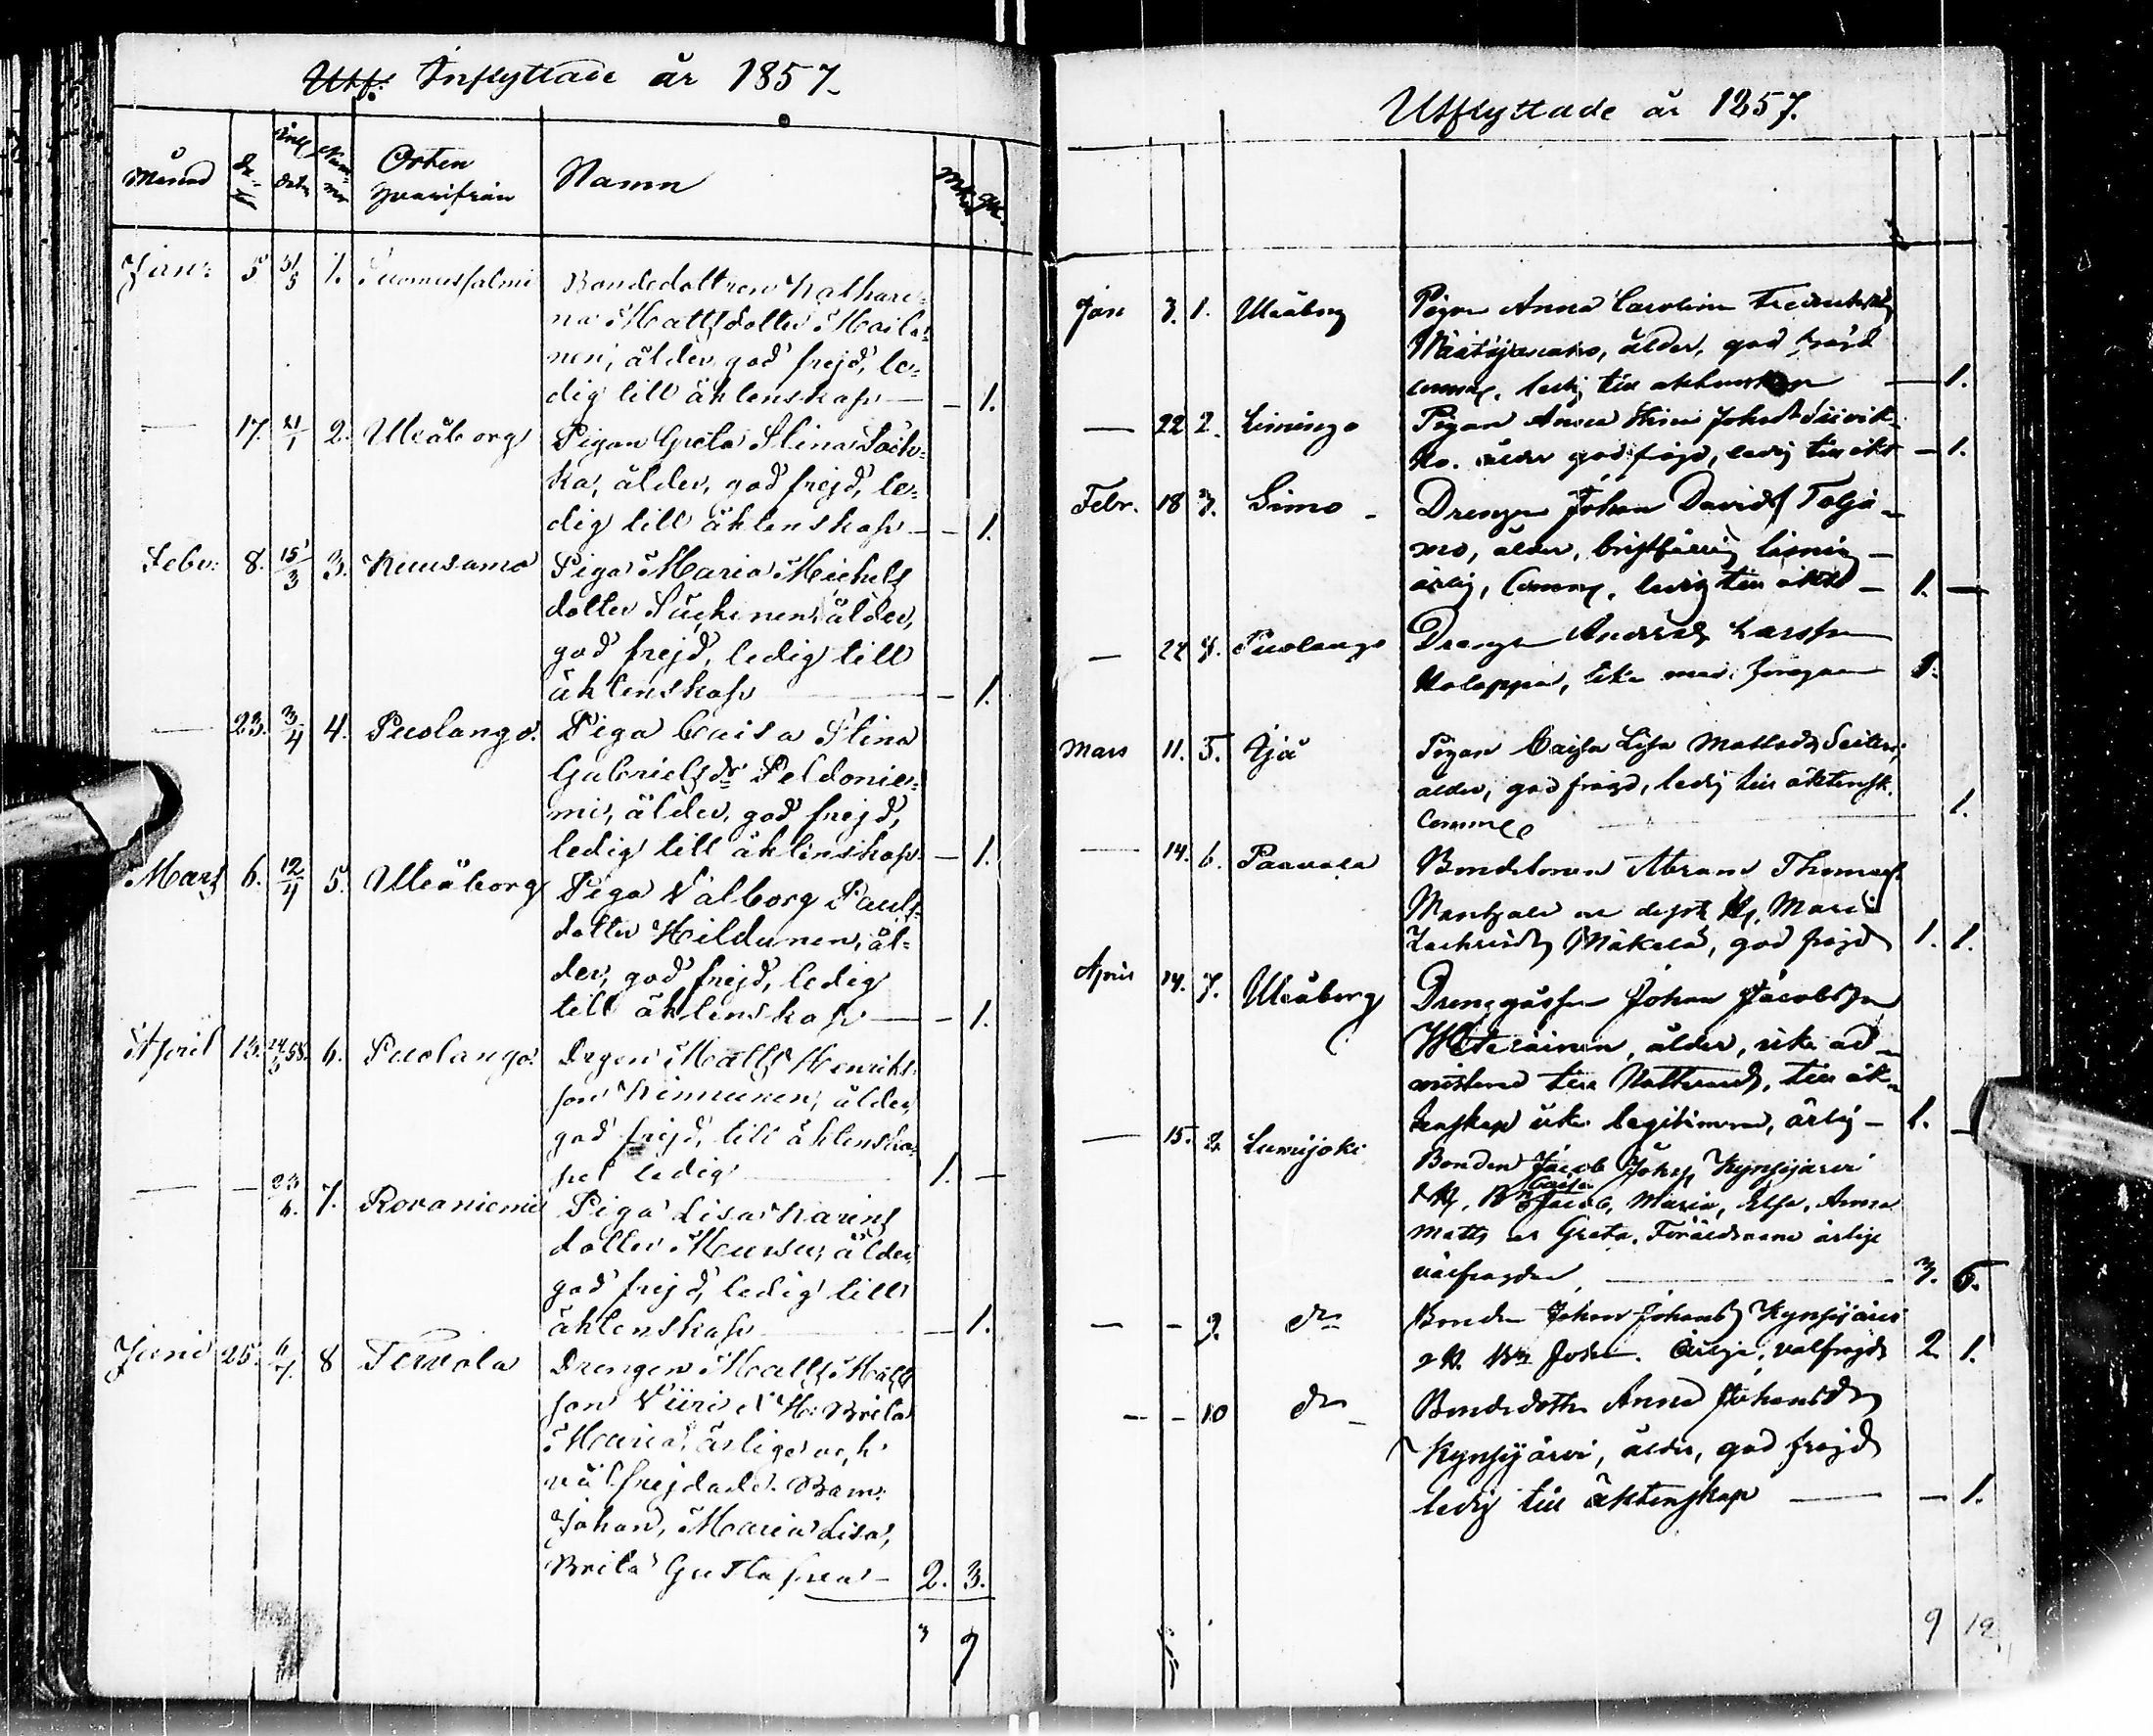 Inflyttade år 1857.
Månad Orten Namn Mk. Qk.
hvarifrån
Janr: 5 31/5 1. Suomussalmi Bondedottren Kathari-
na Mattsdotter Moila-
nen, ålder, god frejd, le-
dig till äktenskap — — 1.
— 17. 21/1 2. Uleåborg Pigan Greta Stina
ka, ålder, god frejd, le-
dig till äktenskap — — 1.
Febr: 8. 15/3 3. Kuusamo Piga Maria Michels
dotter ålder,
god frejd, ledig till
äktenskap — — 1.
— 23. 3/4 4. Puolango. Piga Caisa Stina
Gabrielsdr Peldonie-
mi, ålder, god frejd,
ledig till äktenskap. — 1.
Mars 6. 12/4 5. Uleåborg Piga Valborg Pauls-
dotter Hildunen, ål-
der, god frejd, ledig
till äktenskap — — 1.
April 13. 58. 6. Puolango. Drgen Matts Henriks-
son Kinnunen, ålder,
god frejd, till äktenska-
pet ledig — 1. —
— — 23/6. 7. Rovaniemi Piga Lisa Karins
dotter ålder
god frejd, ledig till
äktenskap — — 1.
Juni 25. 6/7. 8 Tervola Drengen Matts Matts
son Viiri H: Brita
Maria, ärliga och
välfrejdade. Barn:
Johan, Maria Lisa,
Brita Gustafva — 2. 3.
3 9
Utflyttade år 1857.
Jan 3. 1. Uleåborg Pigan Anna Carolina
ålder, god frejd
ledig till äktenskap — 1.
— 22 2. Limingo Pigan Anna Stina Johsdr Siivik-
ko. ålder god frejd, ledig till äkt — 1.
Febr. 18 3. Simo - Drengen Johan Davids Tolja-
mo, ålder, bristfällig läsning —
ärlig, ledig till äkts — 1. —
— 24 4. Puolango Drengen Anders Larsson
Holappa, lika med föregåen 1.
Mars 11. 5. Ijå Pigan Caisa Lisa Mattsdr
ålder, god frejd, ledig till äktensk.
1.
— 14. 6. Paavola Bondesonen Abram Thomass
H. Maria
Zachrisdr Mäkelä, god frejd 1. 1.
April 14. 7. Uleåborg Drenggåssen Johan Jacobsson
ålder, icke ad-
mitterad till Nattvard, till äk-
tenskap icke legitimerad, ärlig — 1. —
— 15. 8. Lumijoki Bonden Jacob Johs. Kynsijärvi
Caisa
& H. Bn Jacob, Maria, Elsa, Anna
Matts och Greta. Föräldrarne ärlige
välfrejdade — 3. 5.
— — 9. do Bonden Johan Johans Kynsijärvi
& H. Bn Johan. Ärlige, välfrejd 2 1.
— — 10 do — Bondedotter Anna Johansdr
Kynsijärvi, ålder, god frejd
ledig till äktenskap — — 1.
9 12